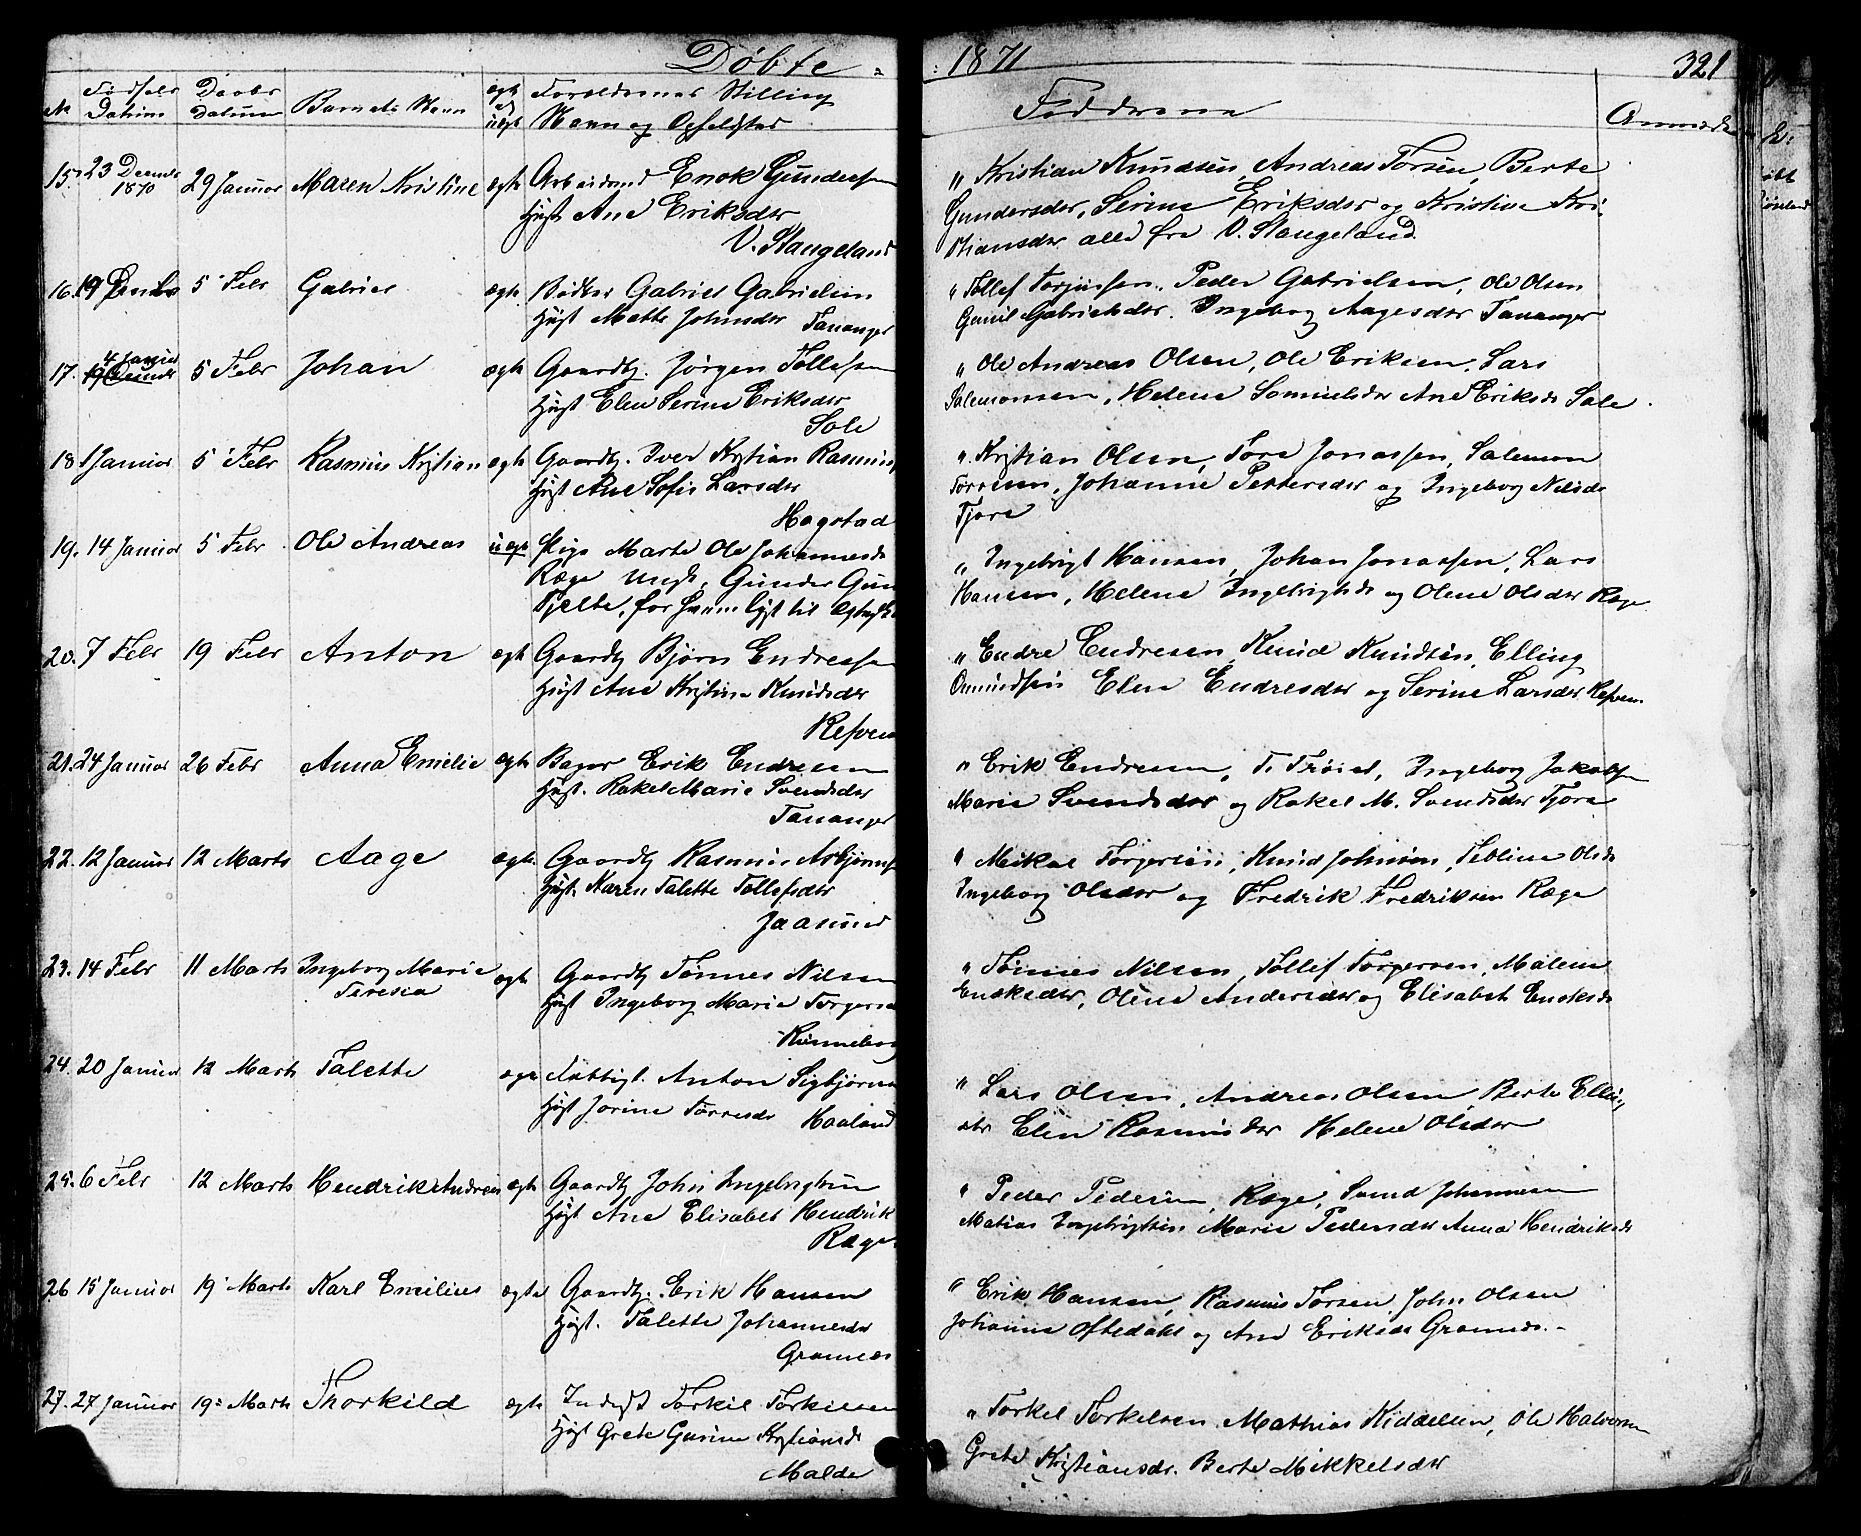 Döbte 1871 321
No Fødsels Datum Daabs datum Barnets Navn ægte el uægt Forældrenes Stilling Navn og Opholdsted
Faddrene
15. 23 Decmb 1870 29 Januar Maren Kristine ægte Arbeidsmd Enok Gundersen
Hust Ane Eriksdtr
V. Stangeland
„ Kristian Knudsen, Andreas Torsen, Berte
Gundersdtr, Serine Eriksdtr og Kristine Kri-
stiansdtr alle fra V. Stangeland
16. 19 Decmbr 5 Febr Gabriel ægte Bødker Gabriel Gabrielsen
Hust Mette Johnsdtr Tananger
„ Tollef Torjussen, Peder Gabrielsen, Ole Olsen
Gabrielsdtr. Ingeborg Aagesdtr Tananger
17. 4 Januar 5 Febr Johan ægte Gaardbr. Jørgen Tollefsen
Hust Elen Serine Eriksdtr
Sole
„ Ole Andreas Olsen, Ole Eriksen, Lars
Salemonsen, Helene Samuelsdtr Ane Eriksdr Sole
18 1 Januar 5 Febr Rasmus Kristian ægte Gaardbr. Iver Kristian Rasmuss
Hust Ane Sofie Larsdtr
Hogstad
„ Kristian Olsen, Tore Jonassen, Salemon
Torresen, Johanne Pettersdtr og Ingeborg Nilsdr
Tjora
19. 14 Januar 5 Febr Ole Andreas uægt Pige Marte Ole Johannesdr
Ræge Ungk. Gunder Gun
Tjelte, for
„ Ingebrigt Hansen, Johan Jonassen, Lars
Hansen, Helene Ingebrigtsdr og Olene Olsdtr Ræge
20. 7 Febr 19 Febr Anton ægte Gaardbr Bjørn Endresen
Hust Ane Kristine Knudsdtr
Refven
„ Endre Endresen, Knud Knudsen, Elling
Omundsen Elen Endresdtr og Serine Larsdtr Refven
21. 24 Januar 26 Febr Anna Emelie ægte Bager Erik Endresen
Hust. Rakel Marie Svendsdtr
Tananger
„ Erik Endresen, Ingeborg Jakobsen
Marie Svendsdtr og Rakel M. Svendsdtr Tjora
22. 12 Januar 12 Marts Aage ægte Gaardbr Rasmus Asbjørns
Hust. Karen Talette Tollefsdtr
Jaasund
„ Mikal Torgersen, Knud Johnsen, Tobline Olsdr
Ingeborg Olsdtr og Fredrik Fredriksen Ræge
23. 14 Febr 11 Marts Ingeborg Marie ægte Gaardbr Tønnes Nilsen
Teresia Hust Ingeborg Marie Torgers
„ Tønnes Nilsen, Tollef Torgersen, Malene
Enoksdtr, Oline Andersdtr og Elisabet Enoksdr
24. 20 Januar 12 Marts Talette ægte Fattigl. Anton Sigbjørns
Hust Jorine Torresdr
Haaland
„ Lars Olsen, Andreas Olsen Berte Elling
sdtr Elen Rasmusdtr Helene Olsdtr
25. 6 Febr 12 Marts Hendrik Andreas ægte Gaardbr John Ingebrigtsen
Hust Ane Elisabet Hendrik
Ræge
„ Peder Pedersen, Ræge, Svend Johannesen
Matias Ingebrigtsen Marie Pedersdtr Anna Hendriksdr
26 15 Januar 19 Marts Karl Emilius ægte Gaardbr. Erik Hansen
Hust. Talette Johannesdtr
Gramnæs
„ Erik Hansen, Rasmus Torsen, John Olsen
Johanna Oftedahl og Ane Eriksdr Gramnæs. –
27. 27 Januar 19 Marts Thorkild ægte Inderst Torkil Torkilsen
Hust Grete Gurine Kristiansdr
Malde
„ Torkel Torkelsen, Mathias Kiddelsen, Ole Halvorsen
Grete Kristiansdr. Berte Mikkelsdtr